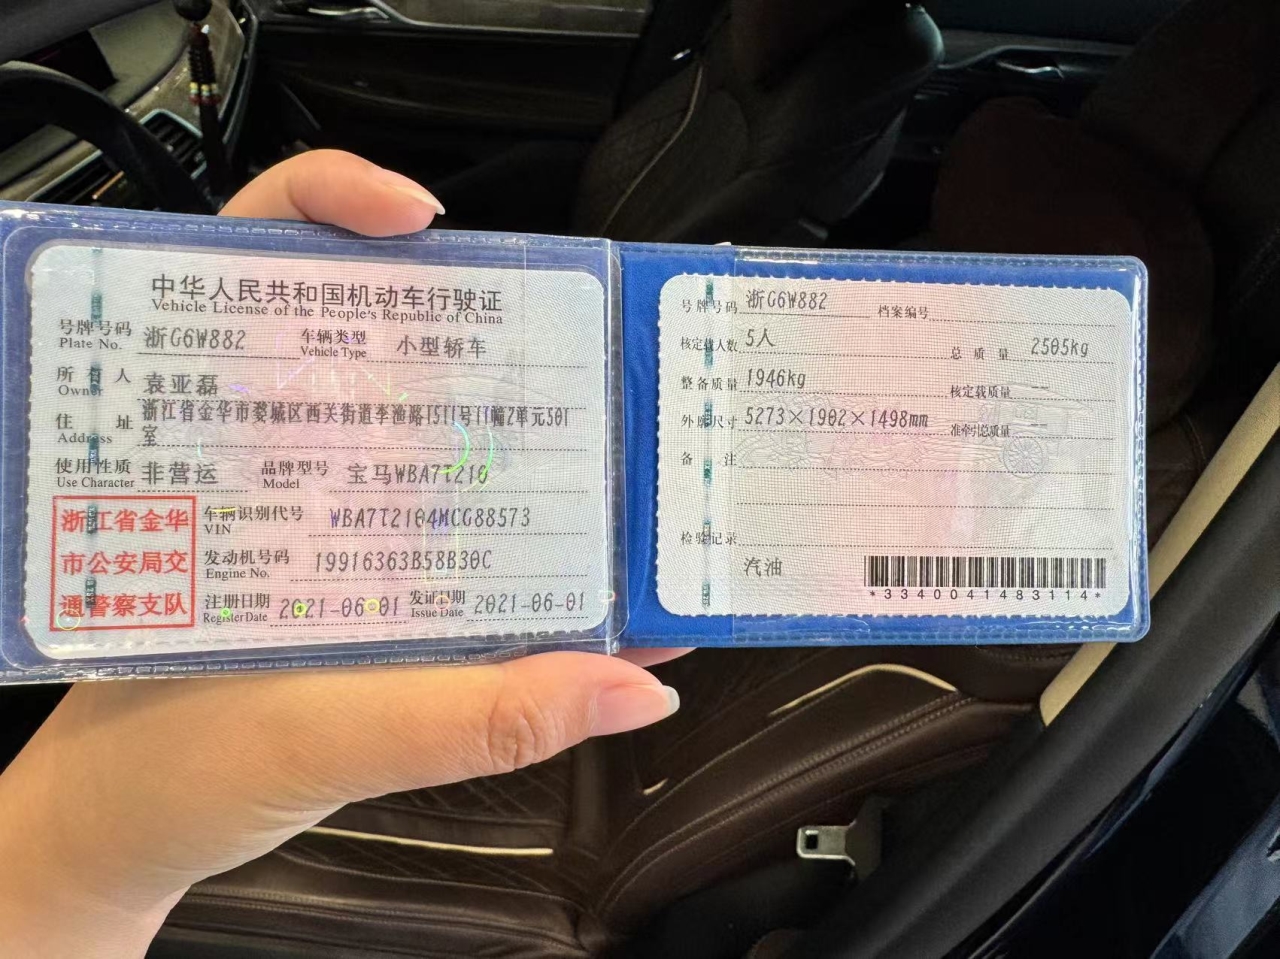 中华人民共和国机动车行驶证
Vehicle License of the People's Republic of China
号牌号码 浙G6W882 车辆类型 小型轿车
Plate No. Vehicle Type
所有人 袁亚磊
Owner
住址 浙江省金华市婺城区西关街道李渔路1511号11幢2单元501
Address 室
使用性质 非营运 品牌型号 宝马WBA7T210
Use Character Model
浙江省金华
市公安局交
通警察支队
车辆识别代号 WBA7T2104MCG88573
VIN
发动机号码 19916363B58B30C
Engine No.
注册日期 2021-06-01 发证日期 2021-06-01
Register Date Issue Date
号牌号码 浙G6W882 档案编号
核定载人数 5人 总质量 2505kg
整备质量 1946kg 核定载质量 --
外廓尺寸 5273×1902×1498mm 准牵引总质量 --
备注
检验记录
汽油
*3340041483114*